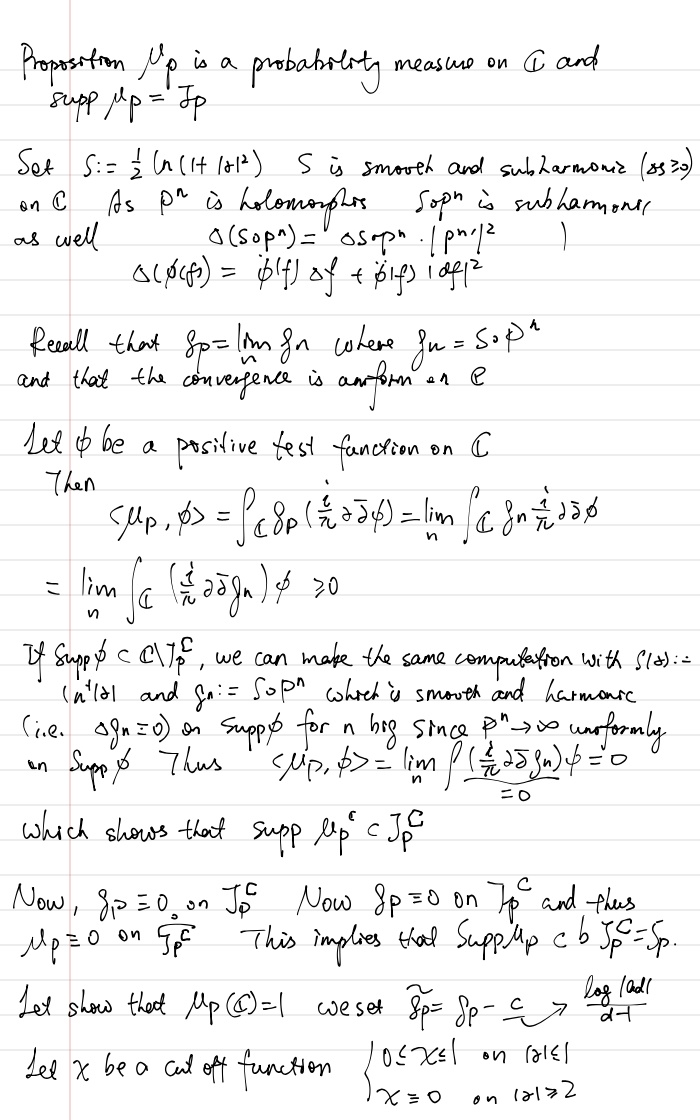 Proposition μp is a probability measure on ℂ and
supp μp = Jp
Set S:= ½ ln(1+|z|²) S is smooth and subharmonic (ΔS≥0)
on ℂ As Pⁿ is holomorphic SoPⁿ is subharmonic
as well Δ(SoPⁿ) = ΔSoPⁿ · |Pⁿ'|² )
Δ(ϕ(f)) = ϕ̇(f) Δf + ϕ̈(f) |df|²
Recall that gp = lim_n gn where gn = S∘Pⁿ
and that the convergence is uniform on ℂ
Let ϕ be a positive test function on ℂ
Then
<μp, ϕ> = ∫_ℂ gp (i/π ∂∂̄ϕ) = lim_n ∫_ℂ gn i/π ∂∂̄ϕ
= lim_n ∫_ℂ (i/π ∂∂̄gn) ϕ ≥0
If Supp ϕ ⊂ ℂ\Jp^ℂ, we can make the same computation with S(z):=
ln⁺|z| and gn := SoPⁿ which is smooth and harmonic
(i.e. Δgn ≡ 0) on supp ϕ for n big since Pⁿ → ∞ uniformly
on Supp ϕ Thus <μp, ϕ> = lim_n ∫ (i/π ∂∂̄gn) ϕ = 0
=0
which shows that supp μp ⊂ Jp^ℂ
Now, gp ≡ 0 on Jp^ℂ Now gp ≡ 0 on Jp^ℂ and thus
μp ≡ 0 on Jp^ℂ This implies that Supp μp ⊂ b Jp^ℂ = Jp.
Let show that μp(ℂ)=1 we set g̃p = gp - c → log|ad|/d-1
Let χ be a cut off function { 0≤χ≤1 on |z|≤1
χ ≡ 0 on |z|≥2